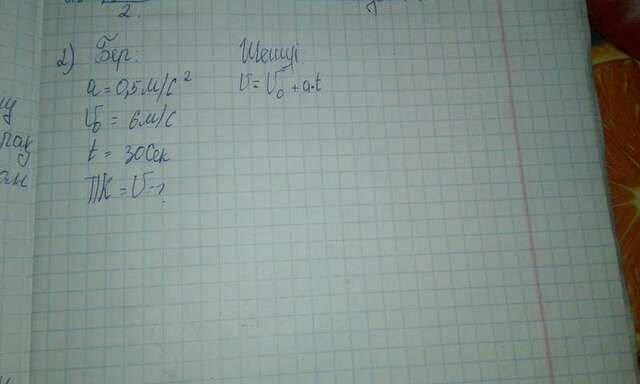 2.
2) Бер:
a = 0,5 м/с²
V₀ = 6 м/с
t = 30 сек
ТК = V - ?
Шешуі
V = V₀ + a·t